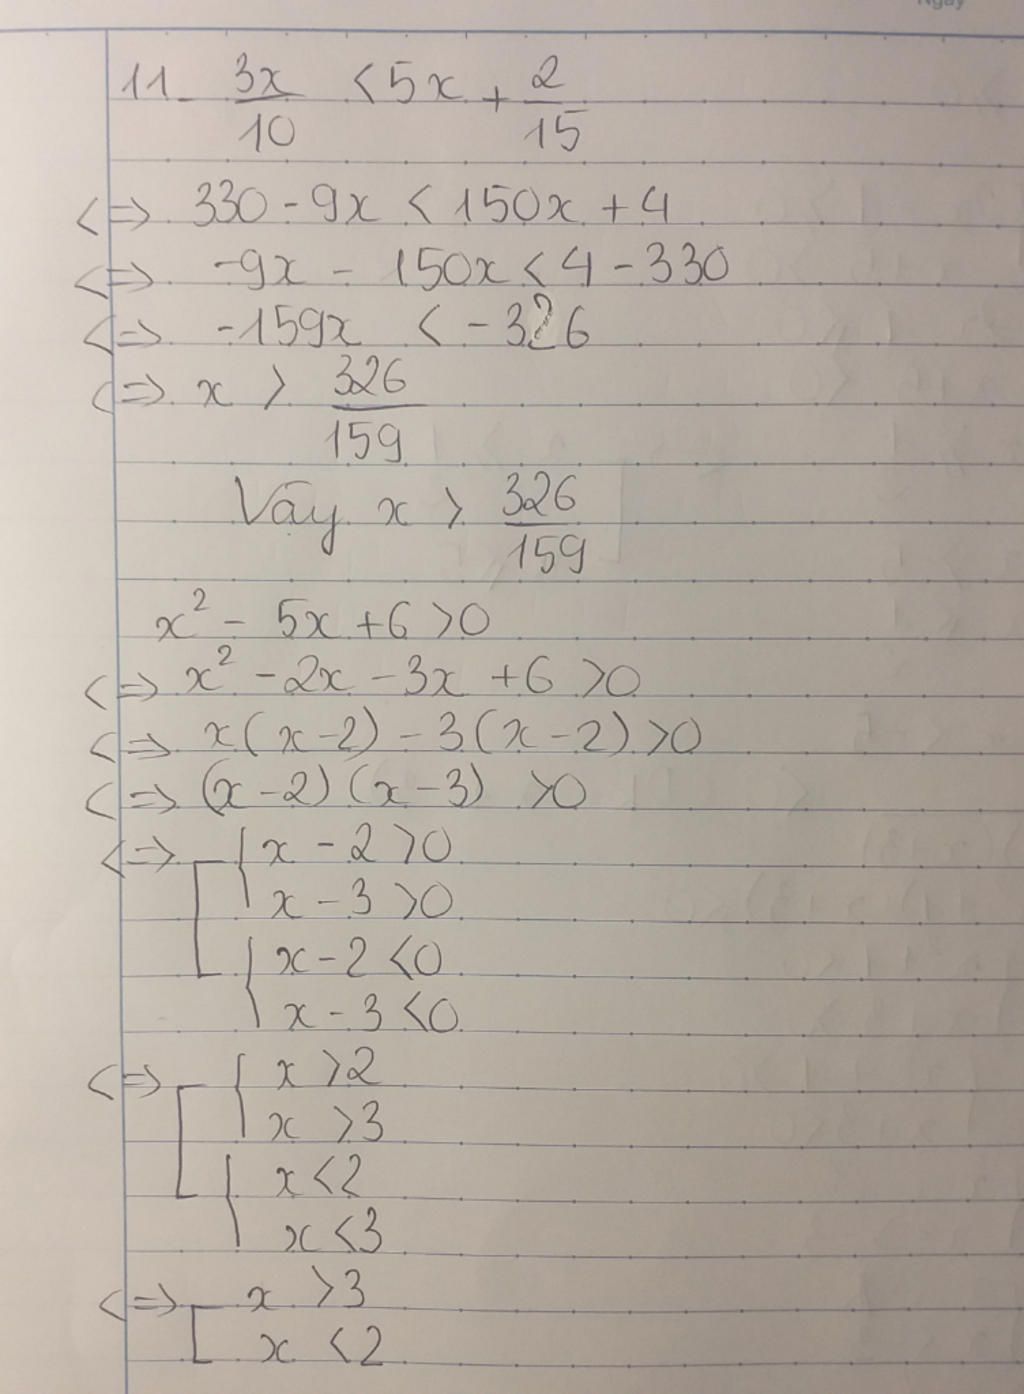 Ngày
11 - 3x/10 < 5x + 2/15
<=> 330 - 9x < 150x + 4
<=> -9x - 150x < 4 - 330
<=> -159x < -326
<=> x > 326/159
Vậy x > 326/159
x² - 5x + 6 > 0
<=> x² - 2x - 3x + 6 > 0
<=> x(x-2) - 3(x-2) > 0
<=> (x-2)(x-3) > 0
<=> [ { x - 2 > 0
x - 3 > 0
{ x - 2 < 0
x - 3 < 0
<=> [ { x > 2
x > 3
{ x < 2
x < 3
<=> [ x > 3
x < 2